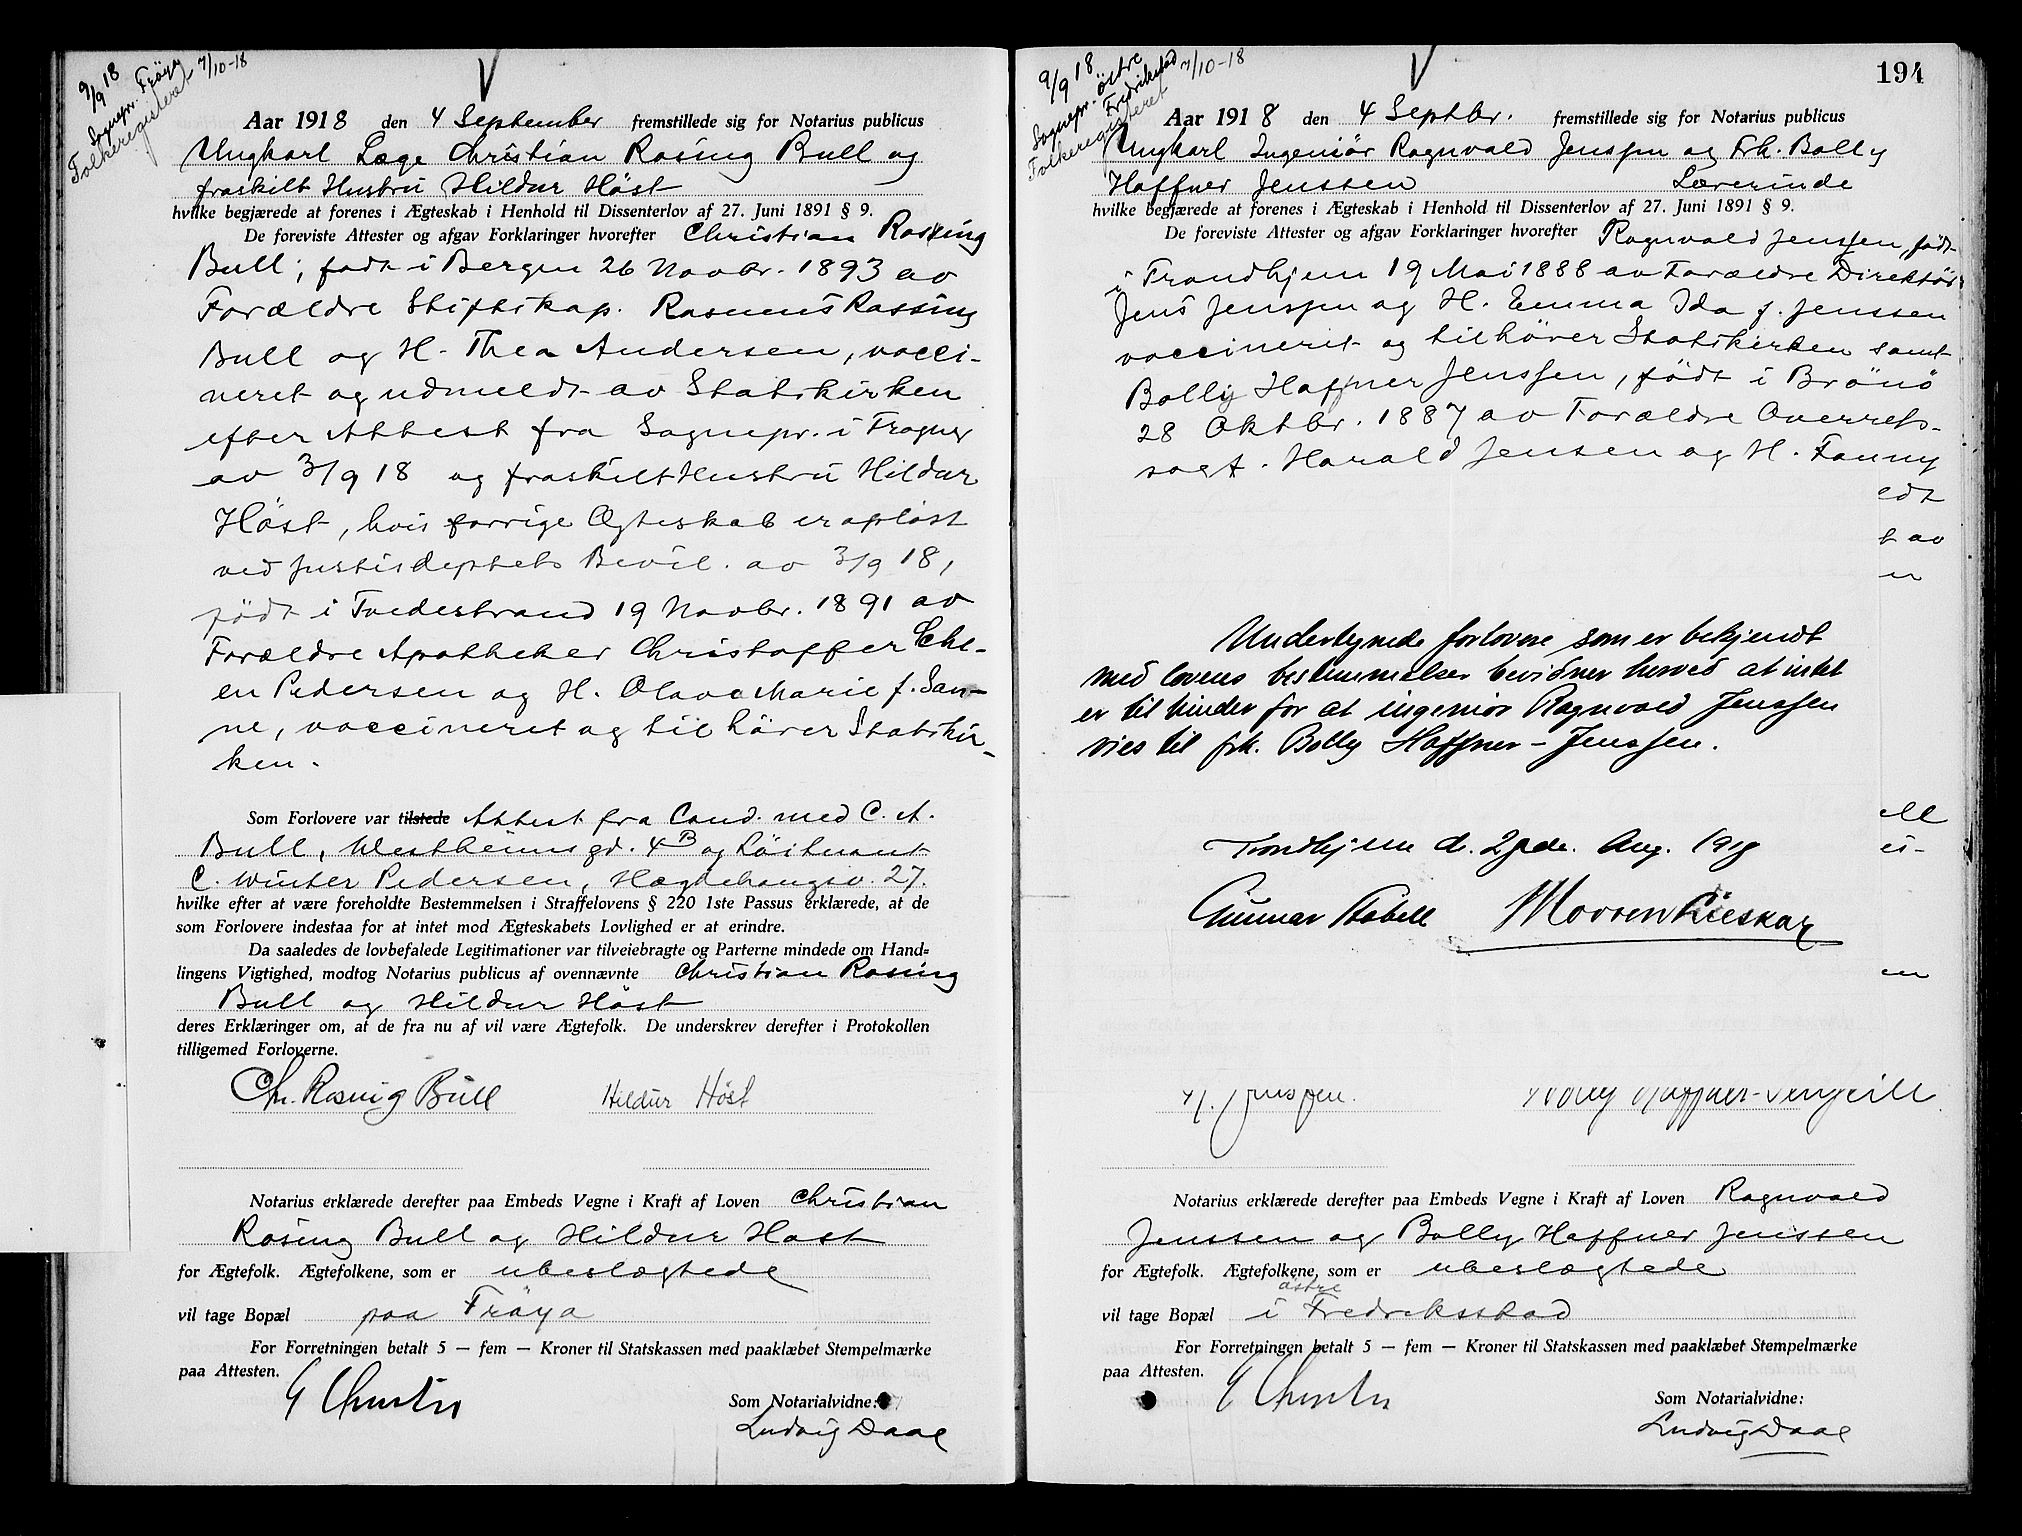 9/9 18
Sognepr. Fröya
Folkeregisteret 7/10-18
Aar 1918 den 4 September fremstillede sig for Notarius publicus
Ungkarl Læge Christian Rosing Bull og
fraskilt Hustru Hildur Höst
hvilke begjærede at forenes i Ægteskab i Henhold til Dissenterlov af 27. Juni 1891 § 9.
De foreviste Attester og afgav Forklaringer hvorefter Christian Rosing
Bull, født i Bergen 26 Novbr. 1893 av
Forældre Stiftskap. Rasmus Rossing
Bull og H. Thea Andersen, vacci-
neret og udmeldt av Statskirken
efter Attest fra Sognepr. i Frogner
av 3/9 18 og fraskilt Hustru Hildur
Höst, hvis forrige Ægteskab er opløst
ved Justisdeptets Bevil. av 3/9 18,
född i Tvedestrand 19 Novbr. 1891 av
Forældre Apotheker Christoffer
en Pedersen og H. Olava Marie f. San-
ne, vaccineret og tilhörer Statskir-
ken.
Som Forlovere var tilstede Attest fra Cand. med C. A.
Bull, Westheimsgd. 4B og Löitnant
C. Winter Pedersen, Hægdehaugsv. 27.
hvilke efter at være foreholdte Bestemmelsen i Straffelovens § 220 1ste Passus erklærede, at de
som Forlovere indestaa for at intet mod Ægteskabets Lovlighed er at erindre.
Da saaledes de lovbefalede Legitimationer var tilveiebragte og Parterne mindede om Hand-
lingens Vigtighed, modtog Notarius publicus af ovennævnte Christian Rosing
Bull og Hildur Höst
deres Erklæringer om, at de fra nu af vil være Ægtefolk. De underskrev derefter i Protokollen
tilligemed Forloverne.
Chr. Rosing Bull Hildur Höst
Notarius erklærede derefter paa Embeds Vegne i Kraft af Loven Christian
Rosing Bull og Hildur Høst
for Ægtefolk. Ægtefolkene, som er ubeslægtede
vil tage Bopæl paa Fröya
For Forretningen betalt 5 — fem — Kroner til Statskassen med paaklæbet Stempelmærke
paa Attesten.
Som Notarialvidne:
Ludvig Daae
194
9/9 18
Sognepr. östre
Fredrikstad
Folkeregisteret 7/10-18
Aar 1918 den 4 Septbr. fremstillede sig for Notarius publicus
Ungkarl Ingeniör Ragnvald Jenssen og Frk. Bolly
Haffner Jenssen Lærerinde
hvilke begjærede at forenes i Ægteskab i Henhold til Dissenterlov af 27. Juni 1891 § 9.
De foreviste Attester og afgav Forklaringer hvorefter Ragnvald Jenssen, födt
i Trondhjem 19 Mai 1888 av Forældre Direktör
Jens Jenssen og H. Emma Ida f. Jenssen
vaccineret og tilhörer Statskirken samt
Bolly Haffner Jenssen, födt i Brönö
28 Oktbr. 1887 av Forældre Overrets-
sagf. Harald Jensen og H. Fanny
edt
t av
n
Undertegnede forlovere som er bekjendt
med lovens bestemmelser bevidner herved at intet
er til hinder for at ingeniör Ragnvald Jenssen
vies til frk. Bolly Haffner-Jenssen.
ell
ei-
Trondhjem d. 29de. Aug. 1918
Gunnar Stabell
en
Notarius erklærede derefter paa Embeds Vegne i Kraft af Loven Ragnvald
Jenssen og Bolly Haffner Jenssen
for Ægtefolk. Ægtefolkene, som er ubeslægtede
östre
vil tage Bopæl i Fredriksstad
For Forretningen betalt 5 — fem — Kroner til Statskassen med paaklæbet Stempelmærke
paa Attesten.
Som Notarialvidne:
Ludvig Daae